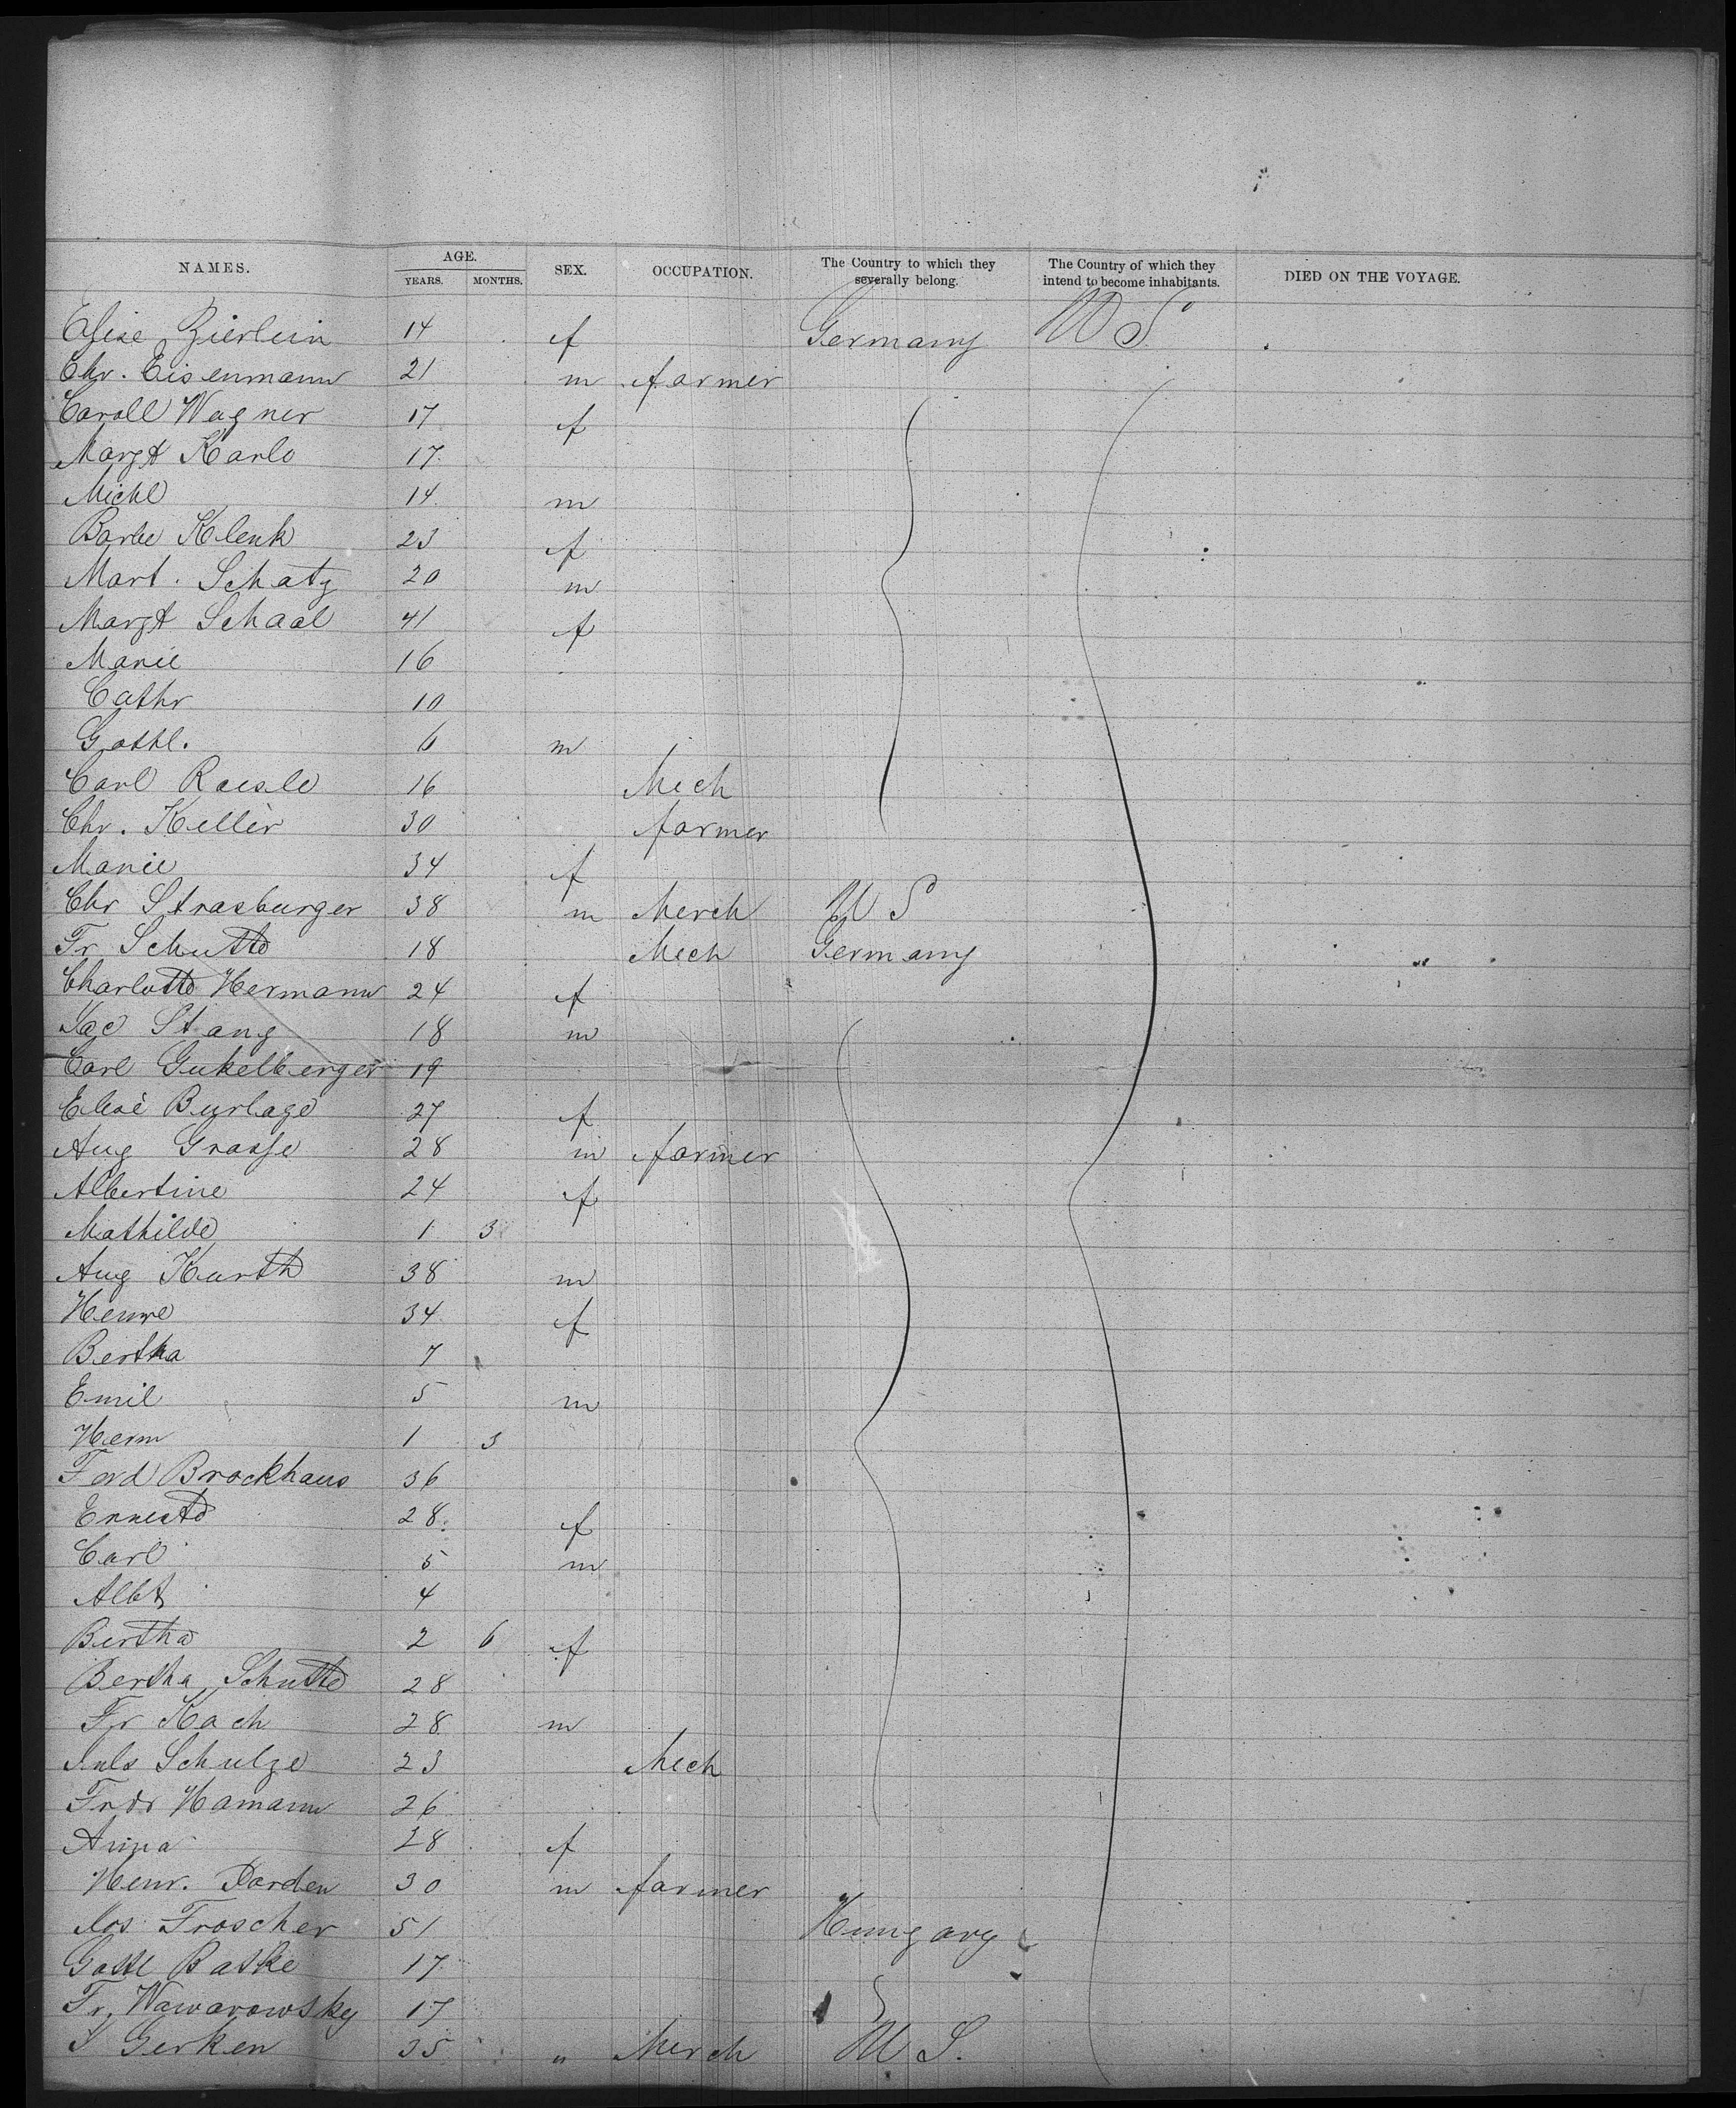 NAMES. AGE. YEARS. MONTHS. SEX. OCCUPATION. The Country to which they severally belong. The Country of which they intend to become inhabitants. DIED ON THE VOYAGE.
Elise Zierlein 14 f Germany U S
Chr. Eisenmann 21 m farmer
Caroll Wagner 17 f
Margt Karle 17
Michl 14 m
Barbe Klenk 23 f
Mart. Schatz 20 m
Margt Schaal 41 f
Marie 16
Cathr 10
Gottl. 6 m
Carl Raesle 16 Mech
Chr. Keller 30 farmer
Marie 34 f
Chr Strasburger 38 m Merch U S
Fr Schutte 18 Mech Germany
Charlotte Hermann 24 f
Jac Stang 18 m
Carl Gukelberger 19
Elise Burlage 27 f
Aug Grasse 28 m farmer
Albertine 24 f
Mathilde 1 3
Aug Kurth 38 m
Henre 34 f
Bertha 7
Emil 5 m
Herm 1 3
Ferd Brockhaus 36
Erneste 28 f
Carl 5 m
Albt 4
Bertha 2 6 f
Bertha Schutte 28
Fr Kach 28 m
Juls Schulze 23 Mech
Frdr Hamann 26
Anna 28 f
Henr. Darden 30 m farmer
Jos Troscher 51 Hungary
Gottl Batke 17
Fr. Nawarowsky 17
J Gerken 35 " Merch U S.